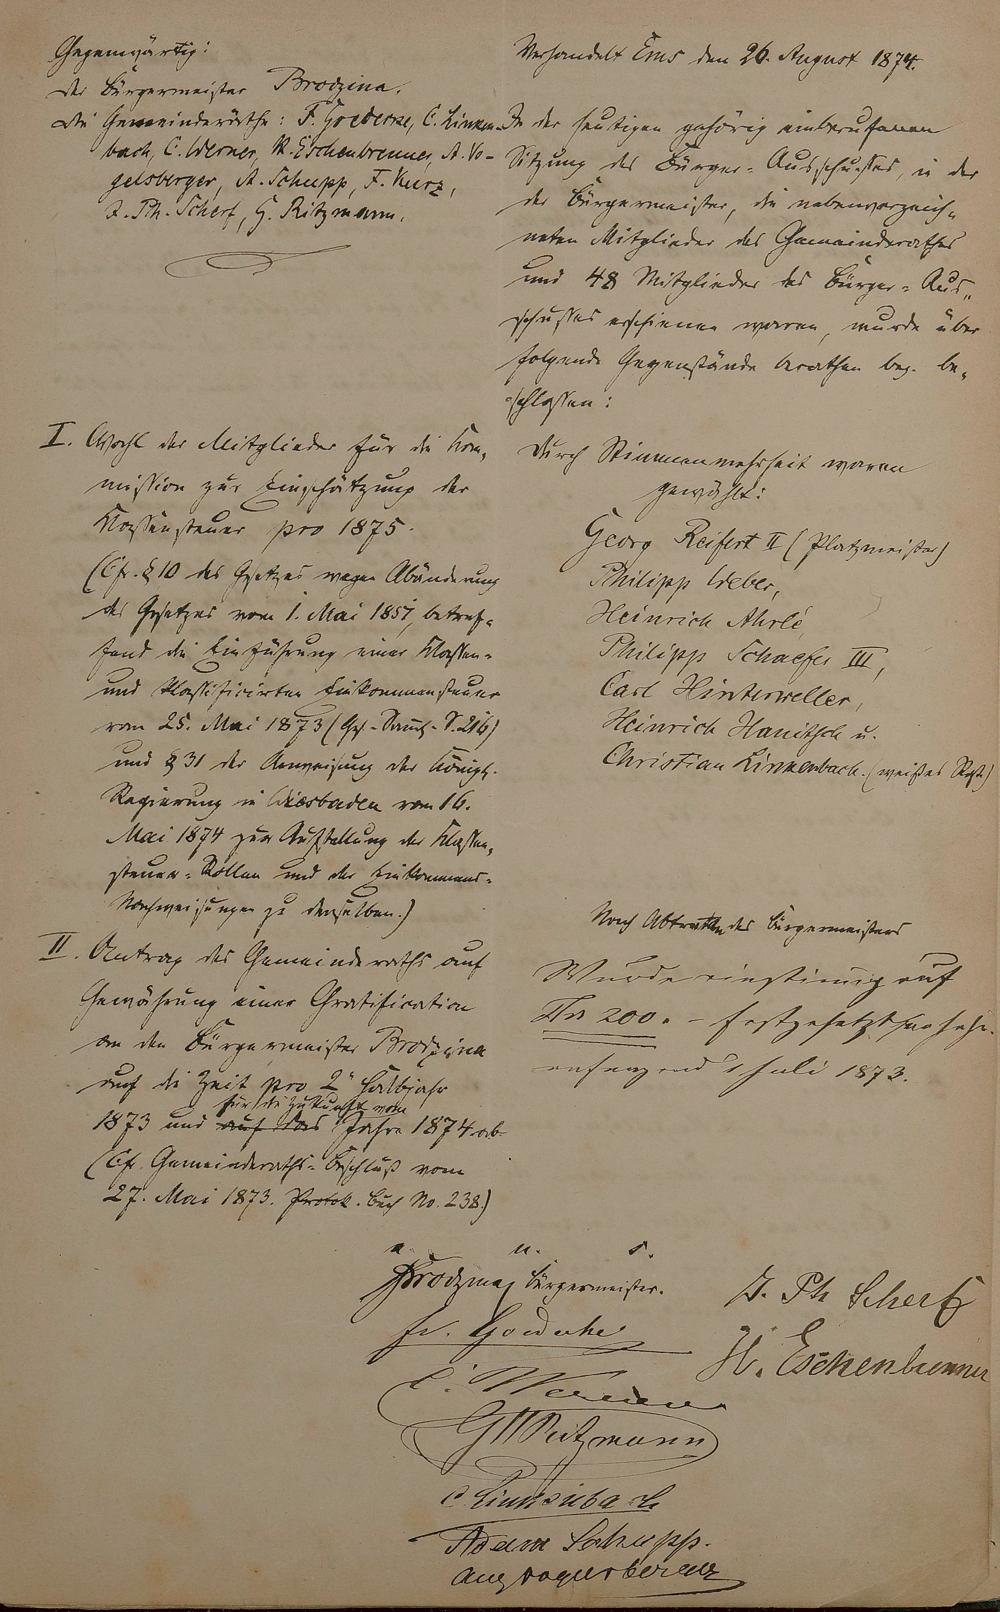 Gegenwärtig:
der Bürgermeister Brodzina.
die Gemeinderäthe: F. Goedecke, C. Linken-
bach, C. Werner, H. Eschenbrenner, A. Vo-
gelsberger, A. Schupp, F. Kurz,
J. Ph. Scherf, G. Ritzmann.
Verhandelt Ems den 26. August 1874.
In der heutigen gehörig einberufenen
Sitzung des Bürger-Ausschusses, in der
der Bürgermeister, die nebenverzeich-
neten Mitglieder des Gemeinderathes
und 48 Mitglieder des Bürger-Aus-
schusses erschienen waren, wurde über
folgende Gegenstände berathen bez. be-
schlossen:
I. Wahl der Mitglieder für die Kom-
mission zur Einschätzung der
Klassensteuer pro 1875.
(Cfr. § 10 des Gesetzes wegen Abänderung
des Gesetzes vom 1. Mai 1851, betref-
fend die Einführung einer Klassen-
und klassificirten Einkommensteuer
vom 25. Mai 1873 (Ges.-Samml. S. 216)
und § 31 der Anweisung der Königl.
Regierung in Wiesbaden vom 16.
Mai 1874 zur Aufstellung der Klassen-
steuer-Rollen und der Einkommens-
Nachweisungen zu denselben.)
Durch Stimmenmehrheit waren
gewählt:
Georg Reifert II (Platzmeister)
Philipp Weber,
Heinrich Ahrlé,
Philipp Schaefer III,
Carl Hinterweller,
Heinrich Hanitsch u.
Christian Linkenbach. (weißes Roß)
II. Antrag des Gemeinderaths auf
Gewährung einer Gratification
an den Bürgermeister Brodzina
auf die Zeit pro 2" Halbjahr
für die Zukunft vom
1873 und auf das Jahre 1874 ab
(Cfr. Gemeinderaths-Beschluß vom
27. Mai 1873. Protok. Buch No. 238.)
Nach Abtreten des Bürgermeisters
Wurde einstimig auf
Tlr 200. - festgesetzt,
anfangend 1 Juli 1873.
v. u. s.
Brodzina, Bürgermeister.
Fr. Goedecke
C. Werner
G Ritzmann
C Linkenbach
Adam Schupp.
Aug Vogelsberger
J. Ph Scherf
H. Eschenbrenner